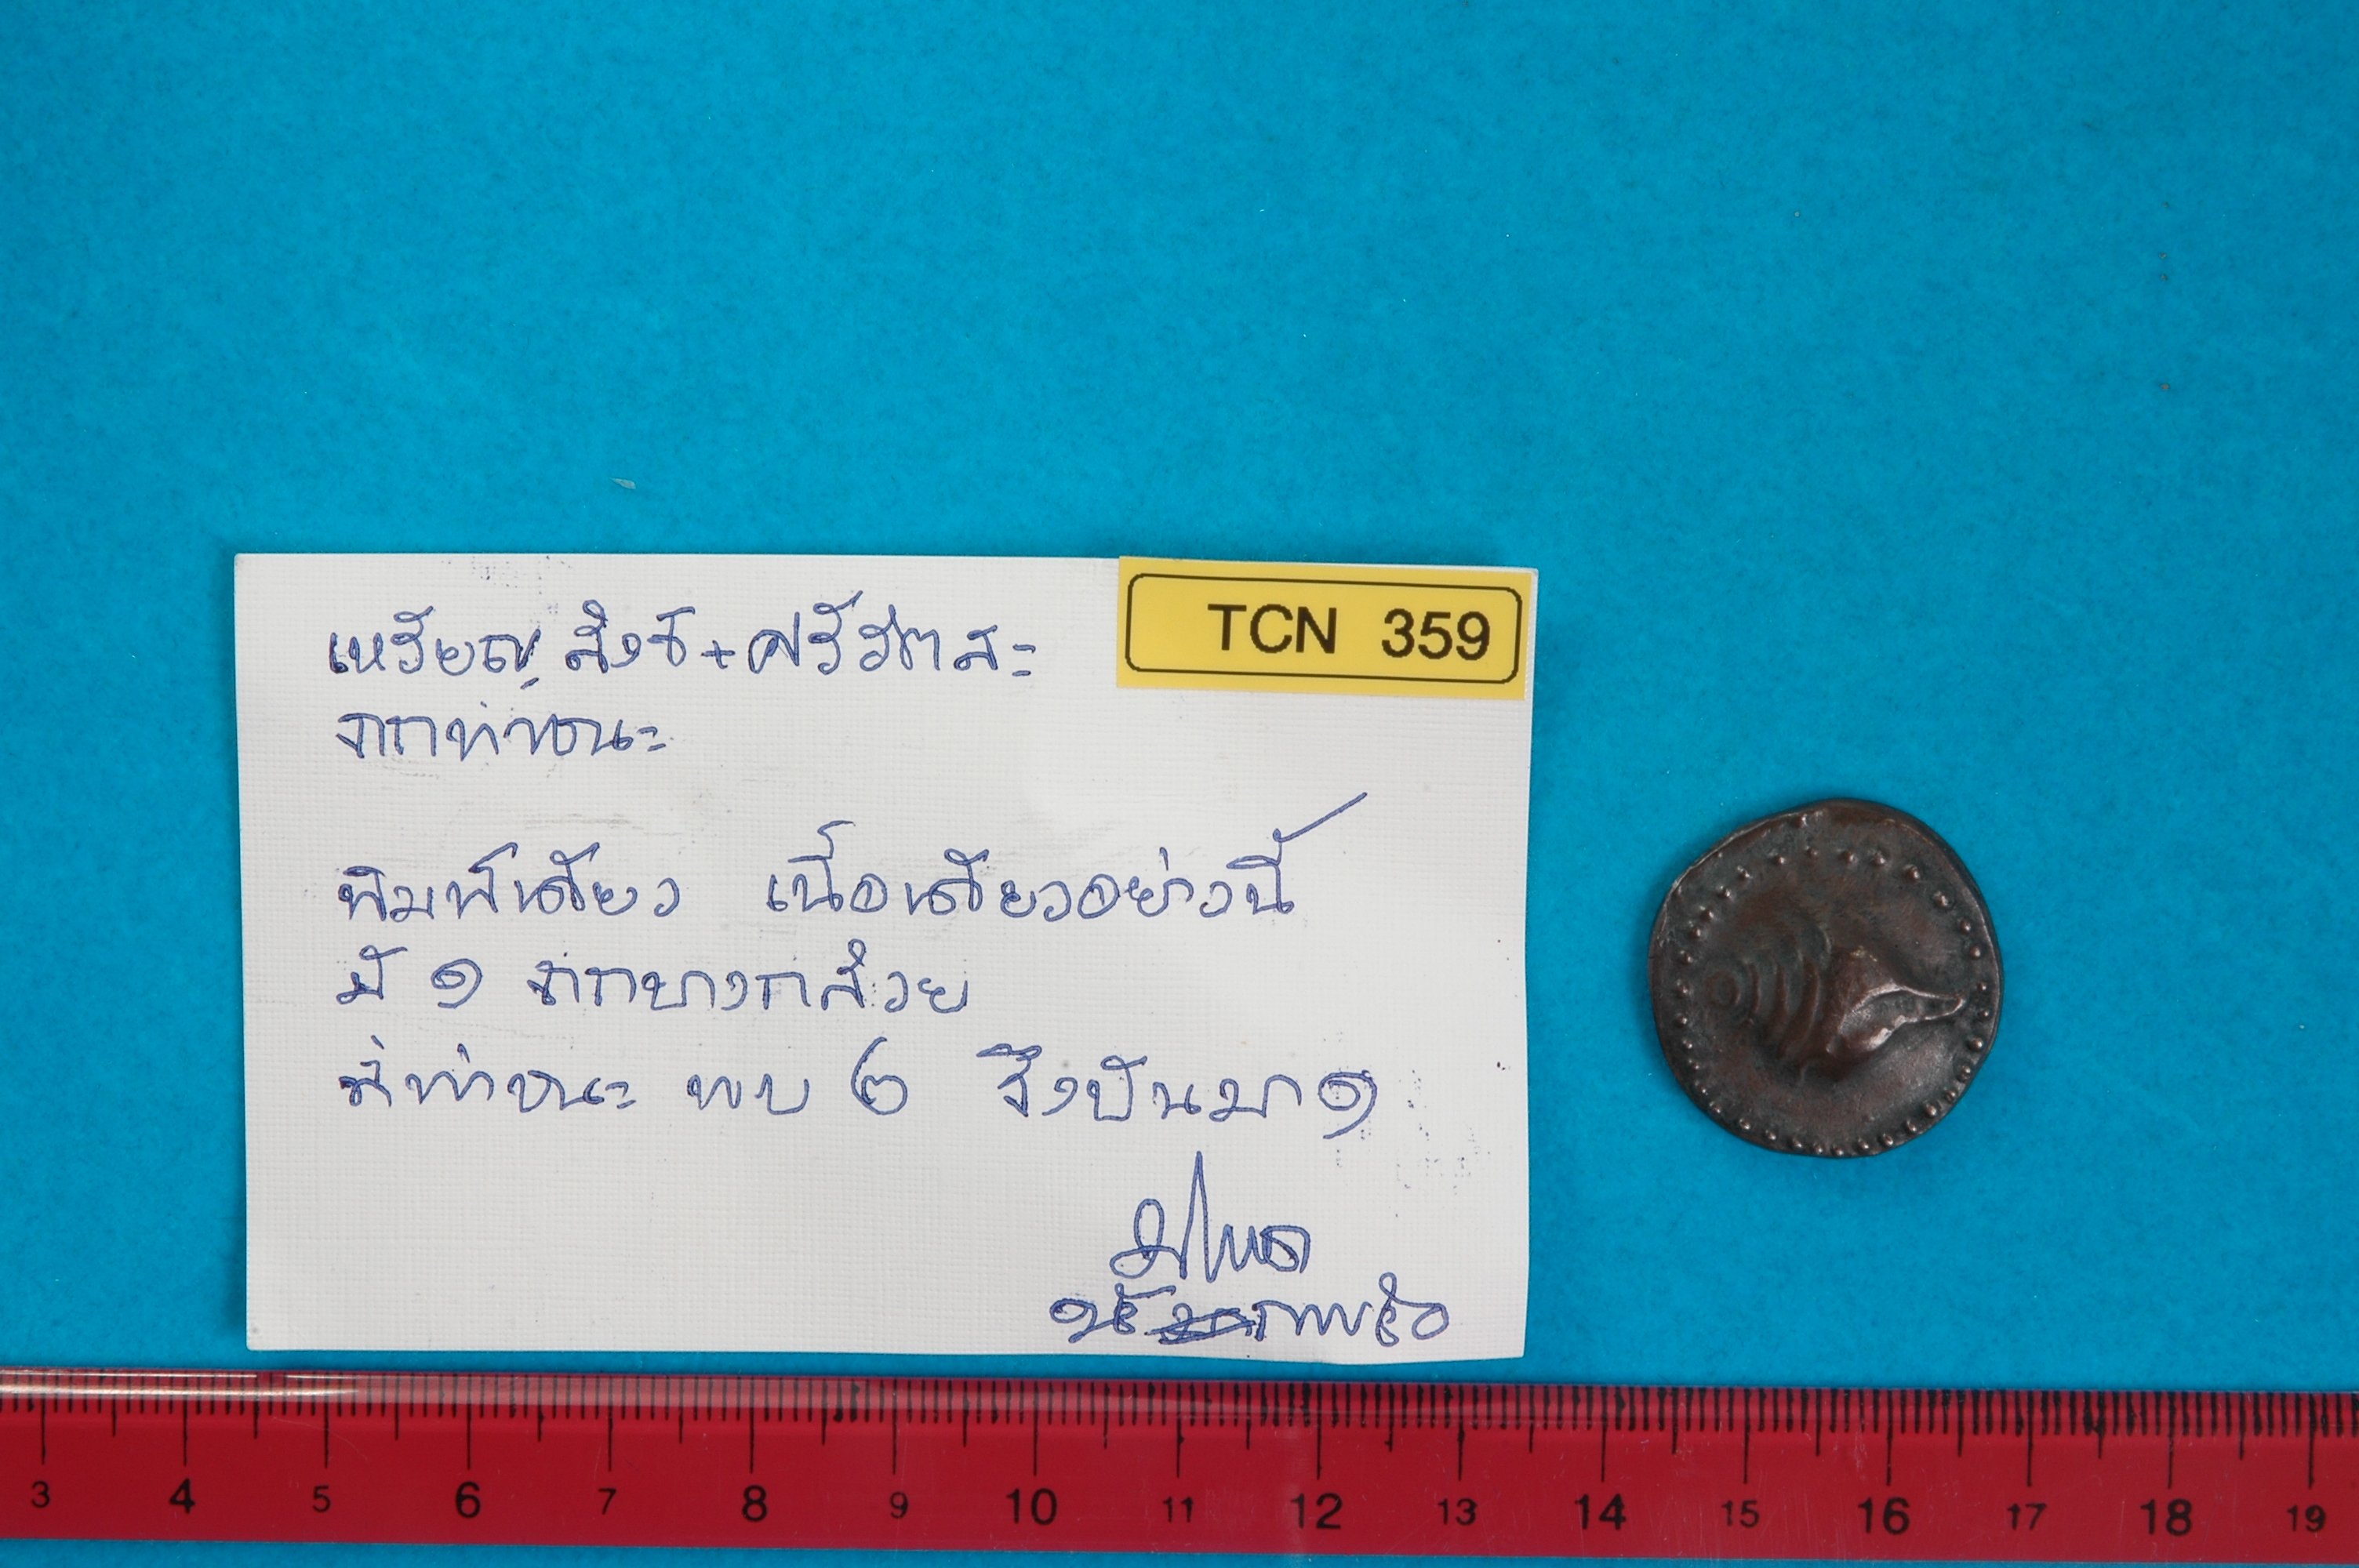 เหรียญ สังข์+ศรีวัตสะ
TCN 359
จากท่าชนะ
พิมพ์เดียว เนื้อเดียวอย่างนี้
มี ๑ จากบางกล้วย
ที่ท่าชนะ พบ ๒ จึงปันมา ๑
3 4 5 6 7 8 9 10 11 12 13 14 15 16 17 18 19